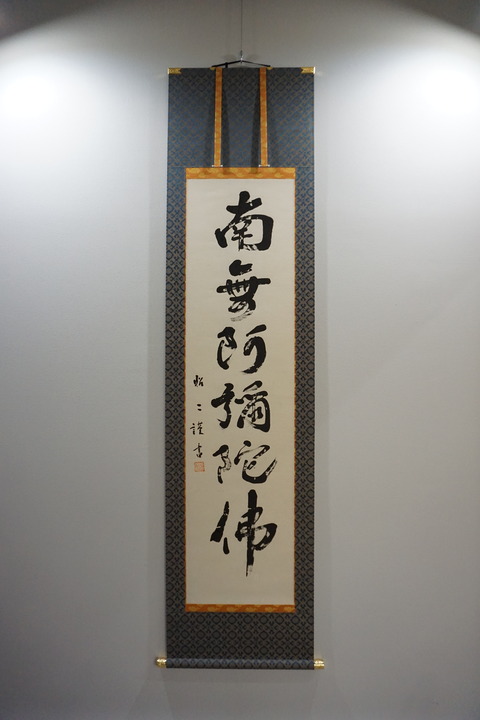 南無阿彌陀佛
昭二謹書